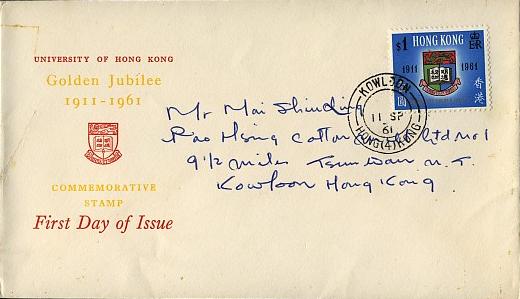 UNIVERSITY OF HONG KONG
Golden Jubilee
1911-1961
COMMEMORATIVE
STAMP
First Day of Issue
$1 HONG KONG
E II R
1911 1961
香港
KOWLOON
11 SP
61
HONG (4) KONG
Mr Mai
Pao Hsing Cotton ltd no 1
9½ miles Tsun Wan N. T.
Kowloon Hong Kong.